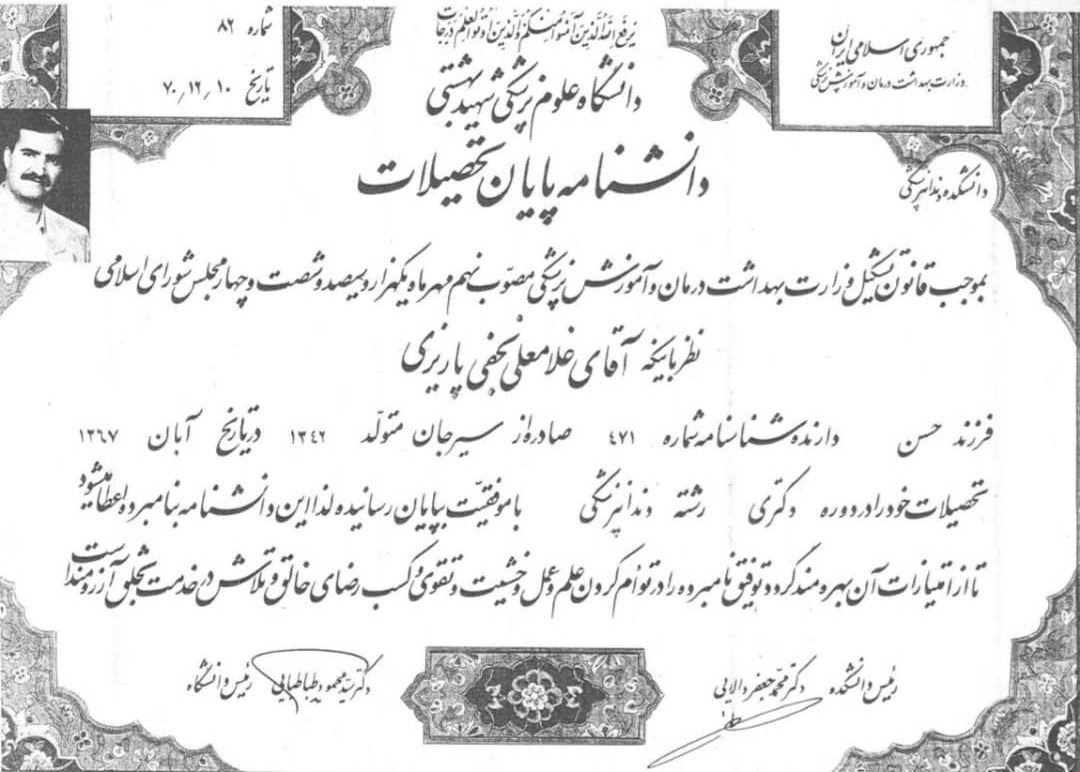 جمهوری اسلامی ایران
وزارت بهداشت درمان و آموزش پزشکی
یرفع الله الذین آمنوا منکم والذین اوتوا العلم درجات
شماره ۸۲
تاریخ ۷۰/۱۲/۱۰
دانشگاه علوم پزشکی شهید بهشتی
دانشکده دندانپزشکی
دانشنامه پایان تحصیلات
بموجب قانون تشکیل وزارت بهداشت درمان و آموزش پزشکی مصوّب نهم مهرماه یکهزار و سیصد و شصت و چهار مجلس شورای اسلامی
نظر باینکه آقای غلامعلی نجفی پاریزی
فرزند حسن دارنده شناسنامه شماره ٤٧١ صادر از سیرجان متولّد ١٣٤٢ در تاریخ آبان ١٣٦٧
تحصیلات خود را در دوره دکتری رشته دندانپزشکی با موفقیّت بپایان رسانیده لذا این دانشنامه بنامبرده اعطا میشود
تا از امتیازات آن بهره‌مند گردد توفیق نامبرده را در توأم کردن علم و عمل و خشیت و تقوی و کسب رضای خالق و تلاش در خدمت بخلق آرزومند است
رئیس دانشکده دکتر محمد جعفر دالایی
دکتر سید محمود طباطبایی رئیس دانشگاه